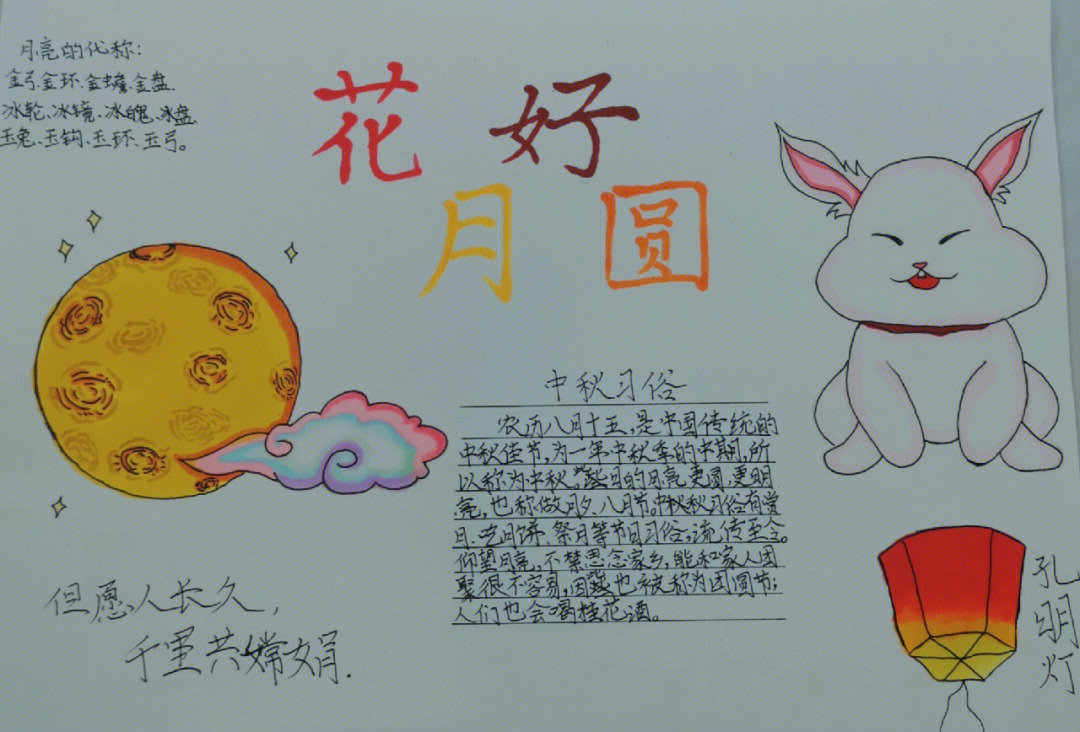 月亮的代称：
金弓、金环、金蟾、金盘、
冰轮、冰镜、冰魄、冰盘、
玉兔、玉钩、玉环、玉弓。
花好
月圆
中秋习俗
农历八月十五，是中国传统的
中秋佳节，为一年中秋季的中期，所
以称为中秋。此日的月亮更圆，更明
亮，也称做月夕、八月节。中秋秋习俗有赏
月、吃月饼、祭月等节日习俗，流传至今。
仰望月亮，不禁思念家乡，能和家人团
聚很不容易，因此也被称为团圆节；
人们也会喝桂花酒。
但愿人长久，
千里共婵娟.
孔明灯